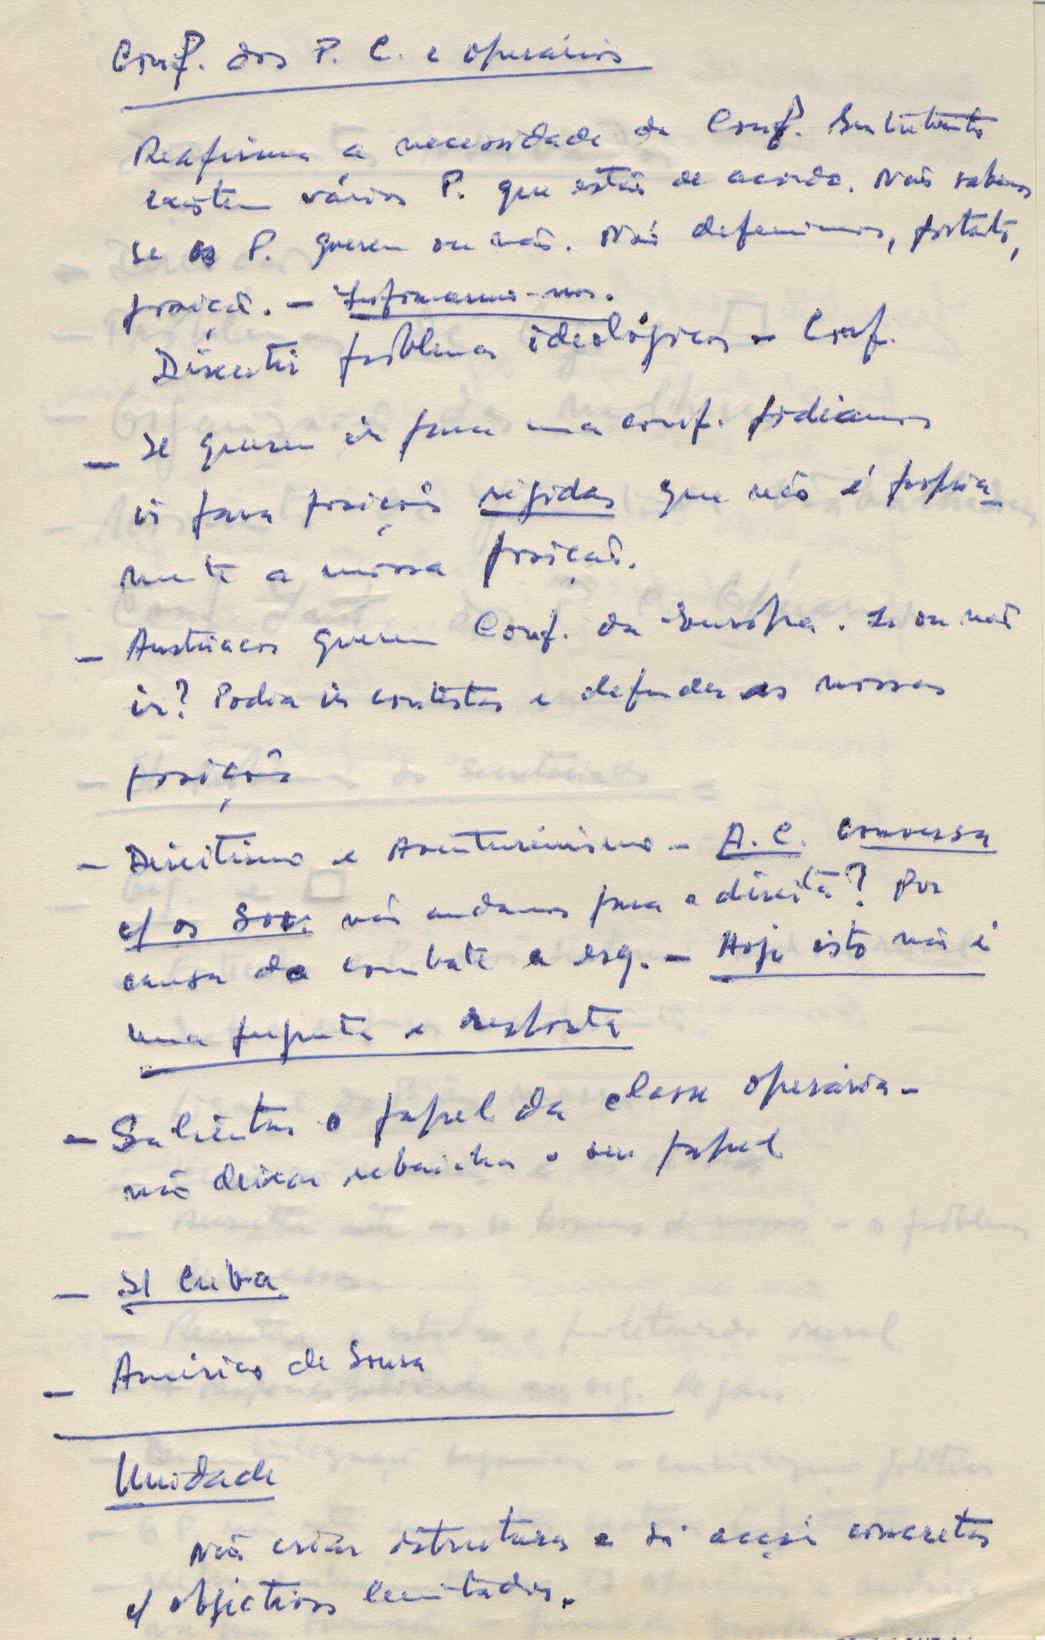 Conf. dos P. C. e operários
Reafirma a necessidade da Conf. Entretanto
existem vários P. que estão de acordo. Não sabemos
se os P. querem ou não. Não definimos, portanto,
posição. - Informarmo-nos.
Discutir problemas ideológicos e Conf.
- Se querem ir para uma conf. podíamos
ir para posições rígidas que não é própria-
mente a nossa posição.
- Austríacos querem Conf. da Europa. Ir ou não
ir? Podia ir contestar e defender as nossas
posições
- Direitismo e Aventureirismo - A. C. conversa
c/ os Sov. nós andamos para a direita? Por
causa do combate a esq. - Hoje isto não é
uma pergunta e resposta
- Salientar o papel da classe operária -
não deixar rebaixar o seu papel
- S/ Cuba
- Américo de Sousa
Unidade
Não criar estruturas e só acção concretas
c/ objectivos limitados.